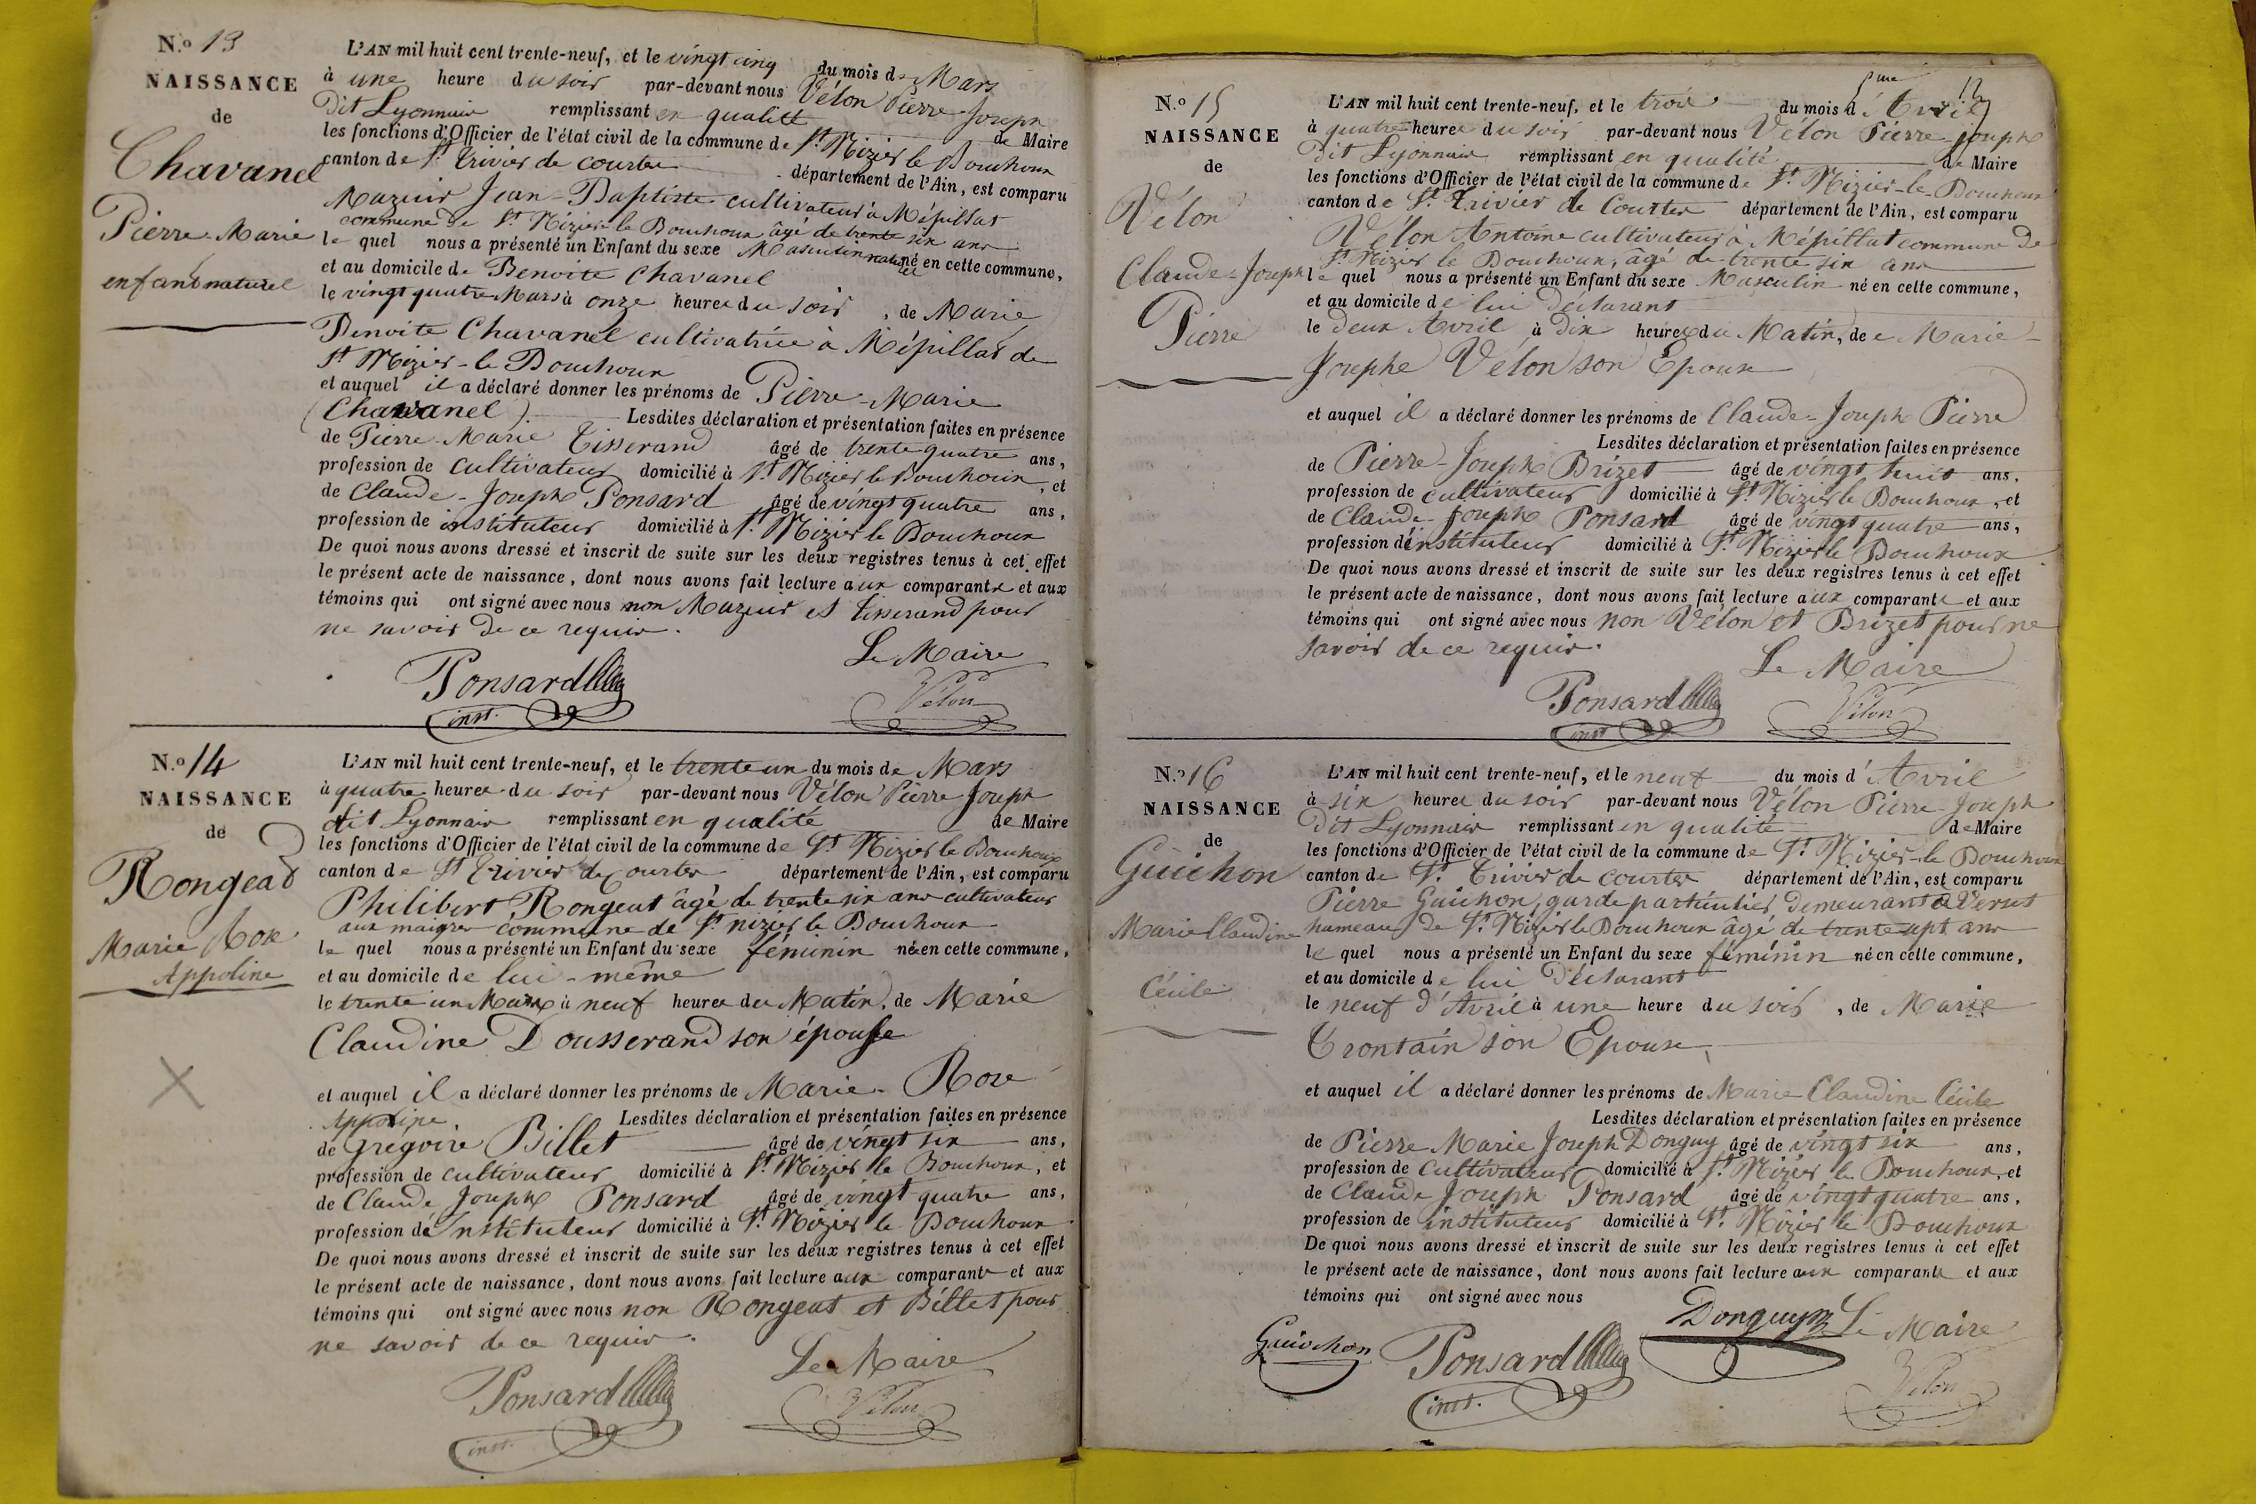 N.o 13
NAISSANCE
de
Chavanel
Pierre-Marie
enfant naturel
L'AN mil huit cent trente-neuf, et le vingt cinq du mois de Mars
à une heure du soir par-devant nous Vélon Pierre-Joseph
dit Lyonnais remplissant en qualité de Maire
les fonctions d'Officier de l'état civil de la commune de St Nizier le Bouchoux
canton de St Trivier de courtes département de l'Ain, est comparu
Mazuir Jean-Baptiste cultivateur à Mépillat
commune de St Nizier-le Bouchoux âgé de trente six ans
le quel nous a présenté un Enfant du sexe Masculin naturel né en cette commune,
et au domicile de Benoite Chavanel
le vingt quatre Mars à onze heures du soir, de Marie
Benoite Chavanel cultivatrice à Mépillat de
St Nizier-le Bouchoux
et auquel il a déclaré donner les prénoms de Pierre-Marie
(Chavanel) Lesdites déclaration et présentation faites en présence
de Pierre-Marie Tisserand âgé de trente quatre ans,
profession de cultivateur domicilié à St Nizier le Bouchoux, et
de Claude-Joseph Ponsard âgé de vingt quatre ans,
profession de instituteur domicilié à St Nizier le Bouchoux
De quoi nous avons dressé et inscrit de suite sur les deux registres tenus à cet effet
le présent acte de naissance, dont nous avons fait lecture aux comparants et aux
témoins qui ont signé avec nous non Mazuir et Tisserand pour
ne savoir de ce requis.
Le Maire
Ponsard
inst.
Vélon
N.o 14
NAISSANCE
de
Rongead
Marie Rose
Appoline
L'AN mil huit cent trente-neuf, et le trente un du mois de Mars
à quatre heures du soir par-devant nous Vélon Pierre Joseph
dit Lyonnais remplissant en qualité de Maire
les fonctions d'Officier de l'état civil de la commune de St Nizier le Bouchoux
canton de St Trivier de Courtes département de l'Ain, est comparu
Philibert Rongeat âgé de trente six ans cultivateur
aux maigres commune de St nizier le Bouchoux
le quel nous a présenté un Enfant du sexe féminin né en cette commune,
et au domicile de lui-même
le trente un Mars à neuf heures du Matin, de Marie
Claudine Dousserand son épouse
et auquel il a déclaré donner les prénoms de Marie-Rose
Appoline. Lesdites déclaration et présentation faites en présence
de Grégoire Billet âgé de vingt six ans,
profession de cultivateur domicilié à St Nizier le Bouchoux, et
de Claude Joseph Ponsard âgé de vingt quatre ans,
profession de Instituteur domicilié à St Nizier le Bouchoux
De quoi nous avons dressé et inscrit de suite sur les deux registres tenus à cet effet
le présent acte de naissance, dont nous avons fait lecture aux comparants et aux
témoins qui ont signé avec nous non Rongeat et Billet pour
ne savoir de ce requis.
Le Maire
Ponsard
inst.
Vélon
12
N.o 15
NAISSANCE
de
Vélon
Claude-Joseph
Pierre
L'AN mil huit cent trente-neuf, et le trois du mois d'Avril
à quatre heures du soir par-devant nous Vélon Pierre-Joseph
dit Lyonnais remplissant en qualité de Maire
les fonctions d'Officier de l'état civil de la commune de St Nizier-le-Bouchoux
canton de St Trivier de Courtes département de l'Ain, est comparu
Vélon Antoine cultivateur à Mépillat commune de
St Nizier le Bouchoux, âgé de trente six ans
le quel nous a présenté un Enfant du sexe Masculin né en cette commune,
et au domicile de lui déclarant
le deux Avril à dix heures du Matin, de Marie-
Josephe Vélon son Epouse
et auquel il a déclaré donner les prénoms de Claude-Joseph Pierre
Lesdites déclaration et présentation faites en présence
de Pierre-Joseph Brizet âgé de vingt huit ans,
profession de cultivateur domicilié à St Nizier le Bouchoux, et
de Claude-Joseph Ponsard âgé de vingt quatre ans,
profession d'instituteur domicilié à St Nizier le Bouchoux
De quoi nous avons dressé et inscrit de suite sur les deux registres tenus à cet effet
le présent acte de naissance, dont nous avons fait lecture aux comparants et aux
témoins qui ont signé avec nous non Vélon et Brizet pour ne
savoir de ce requis.
Le Maire
Ponsard
inst
Vélon
N.o 16
NAISSANCE
de
Guichon
Marie Claudine
Cécile
L'AN mil huit cent trente-neuf, et le neuf du mois d'Avril
à six heures du soir par-devant nous Vélon Pierre-Joseph
dit Lyonnais remplissant en qualité de Maire
les fonctions d'Officier de l'état civil de la commune de St Nizier-le Bouchoux
canton de St Trivier de courtes département de l'Ain, est comparu
Pierre Guichon, garde particulier, demeurant à Verset
hameau de St Nizier le Bouchoux âgé de trente sept ans
le quel nous a présenté un Enfant du sexe féminin né en cette commune,
et au domicile de lui déclarant
le neuf d'Avril à une heure du soir, de Marie
Trontain son Epouse,
et auquel il a déclaré donner les prénoms de Marie Claudine Cécile
Lesdites déclaration et présentation faites en présence
de Pierre Marie Joseph Donguy âgé de vingt six ans,
profession de Cultivateur domicilié à St Nizier le Bouchoux, et
de Claude Joseph Ponsard âgé de vingt quatre ans,
profession de instituteur domicilié à St Nizier le Bouchoux
De quoi nous avons dressé et inscrit de suite sur les deux registres tenus à cet effet
le présent acte de naissance, dont nous avons fait lecture aux comparants et aux
témoins qui ont signé avec nous
Donguy Le Maire
Guichon Ponsard
inst.
Vélon